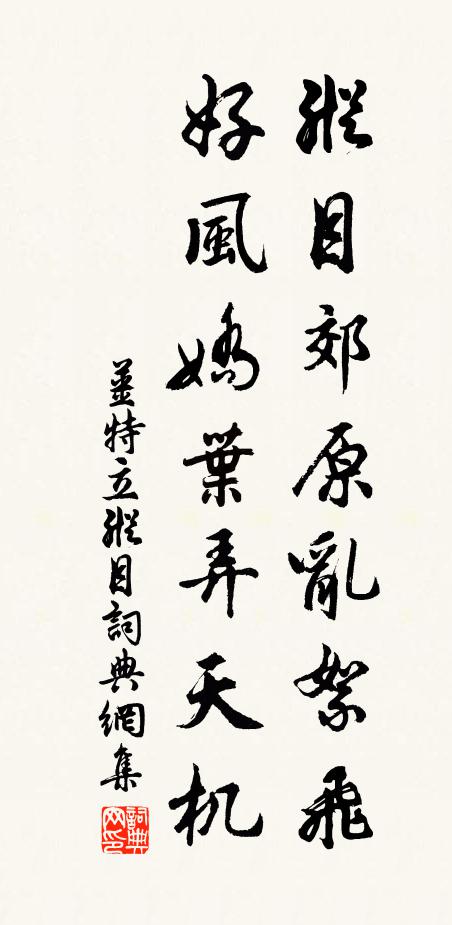 縱目郊原亂絮飛
好風嬌葉弄天机
姜特立縱目詞典網集
詞典网印